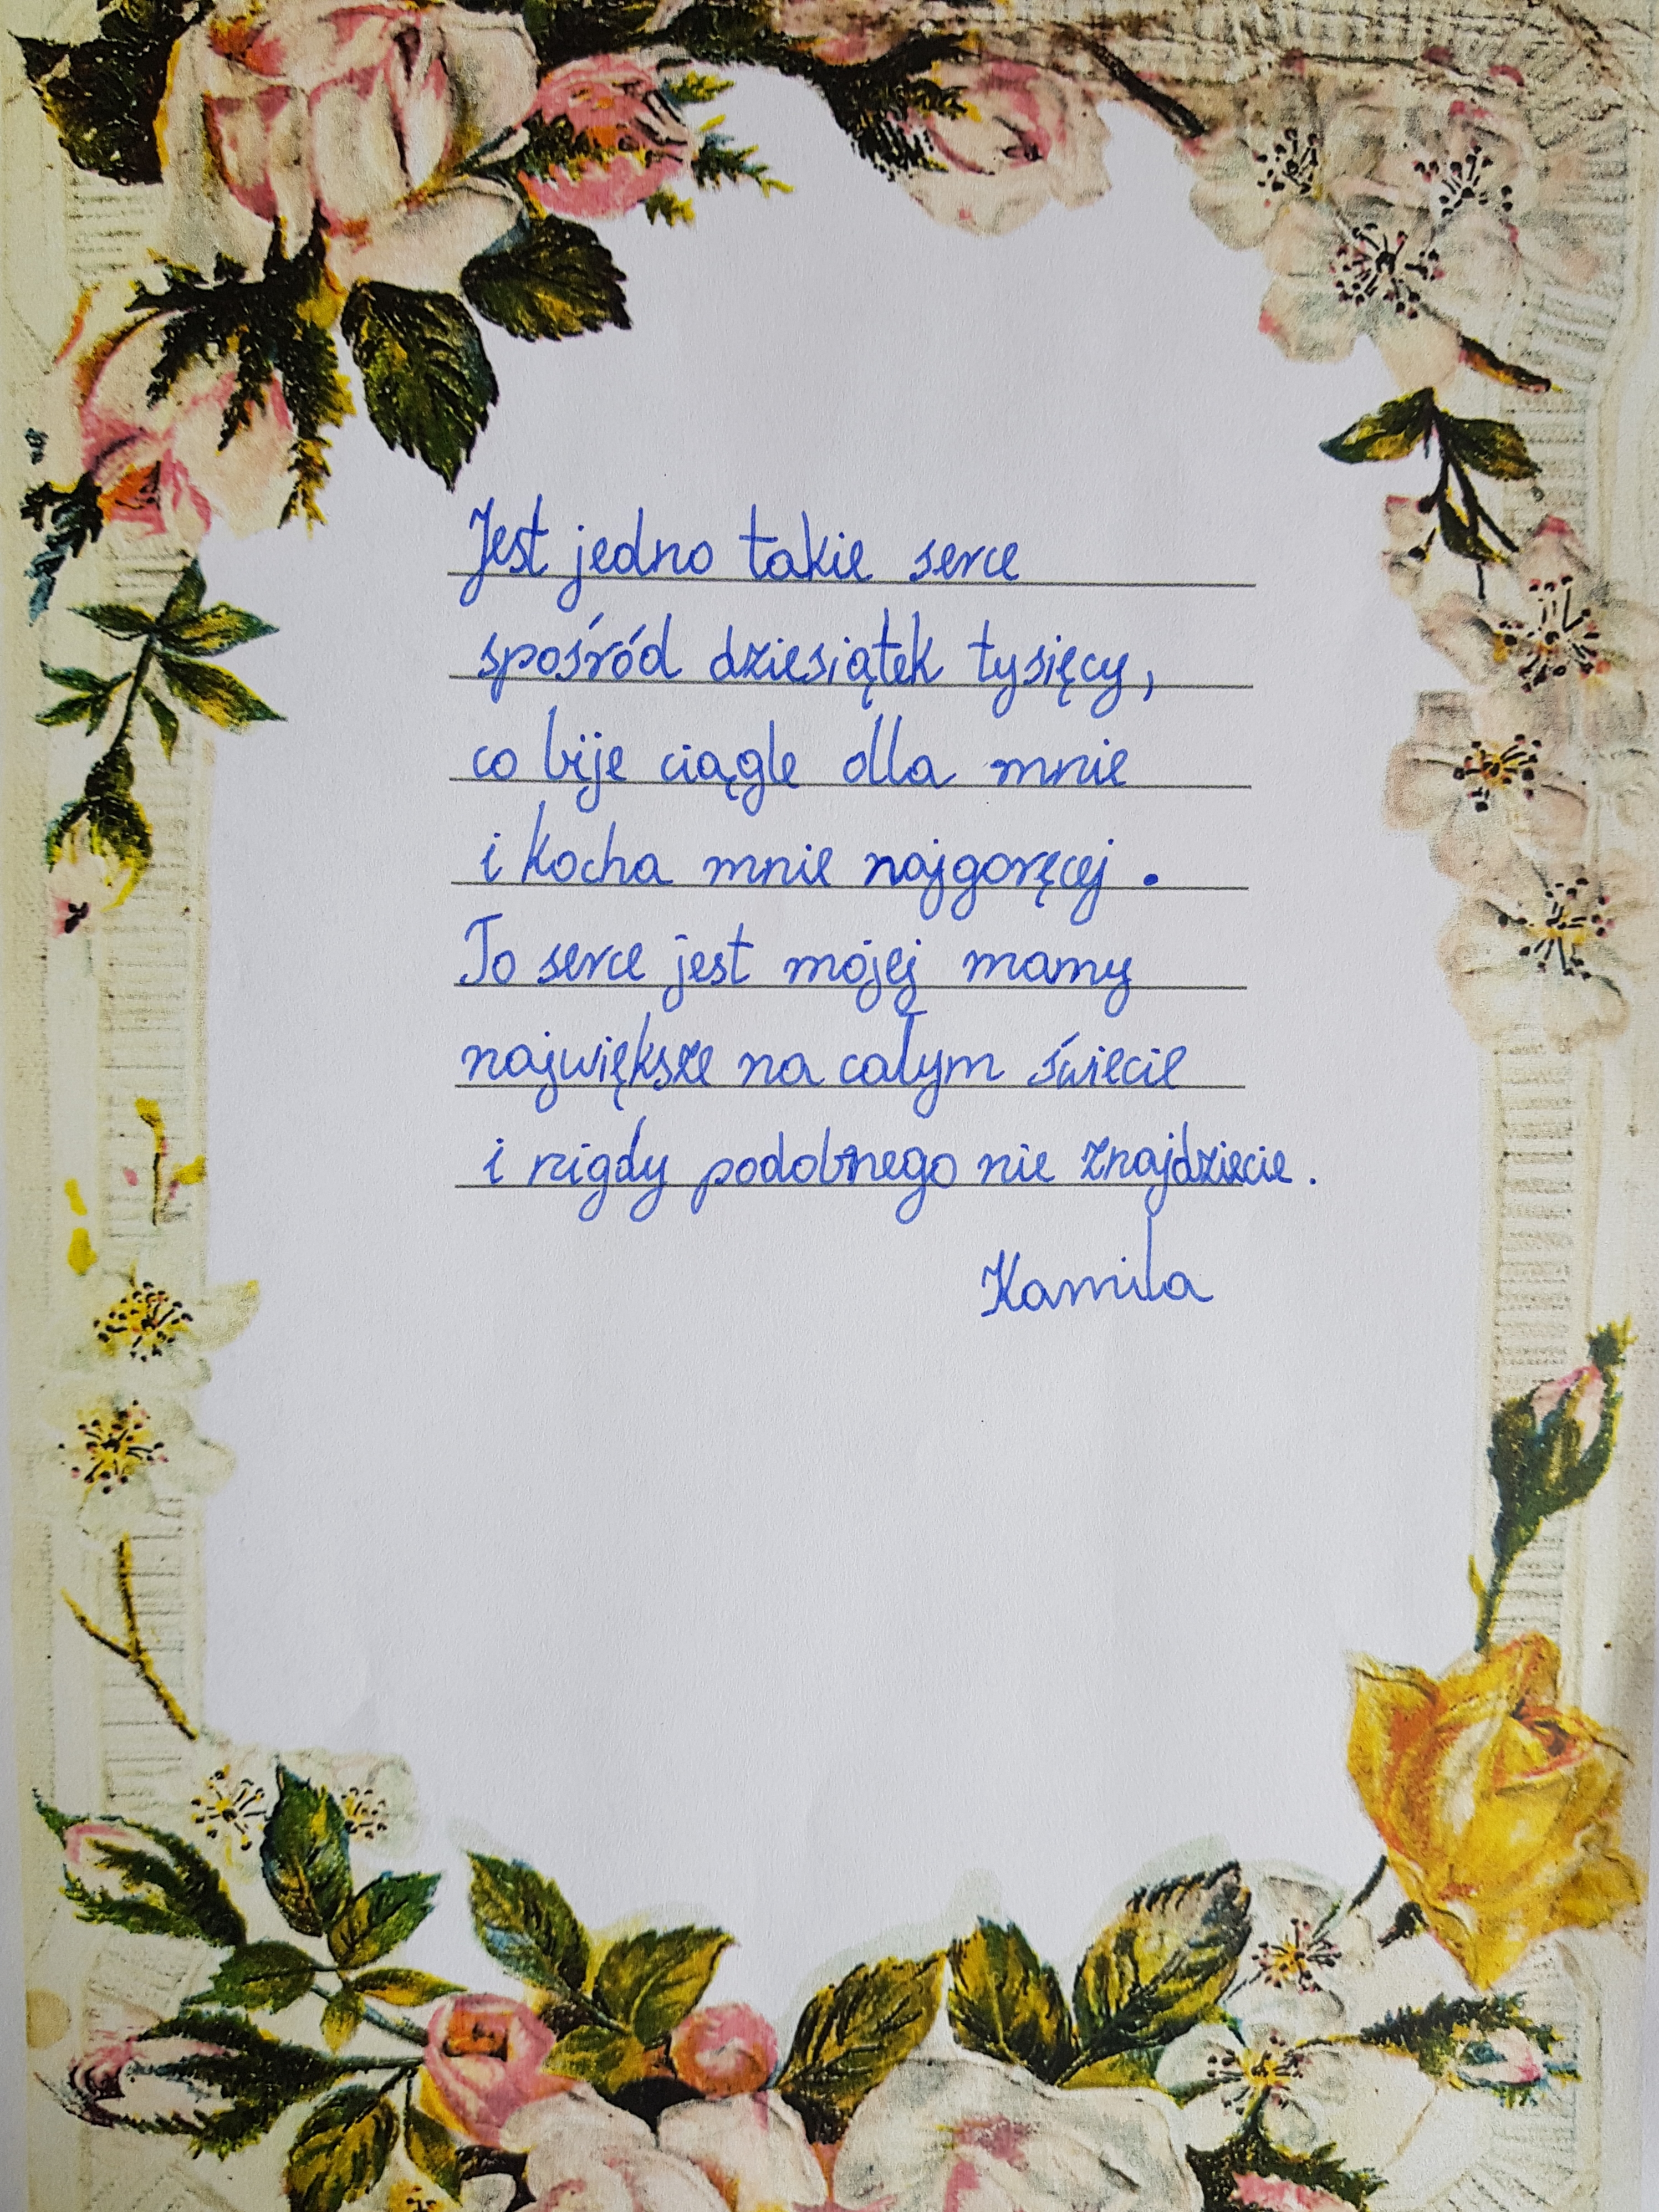 Jest jedno takie serce
spośród dziesiątek tysięcy,
co bije ciągle dla mnie
i kocha mnie najgoręcej.
To serce jest mojej mamy
największe na całym świecie
i nigdy podobnego nie znajdziecie.
Kamila